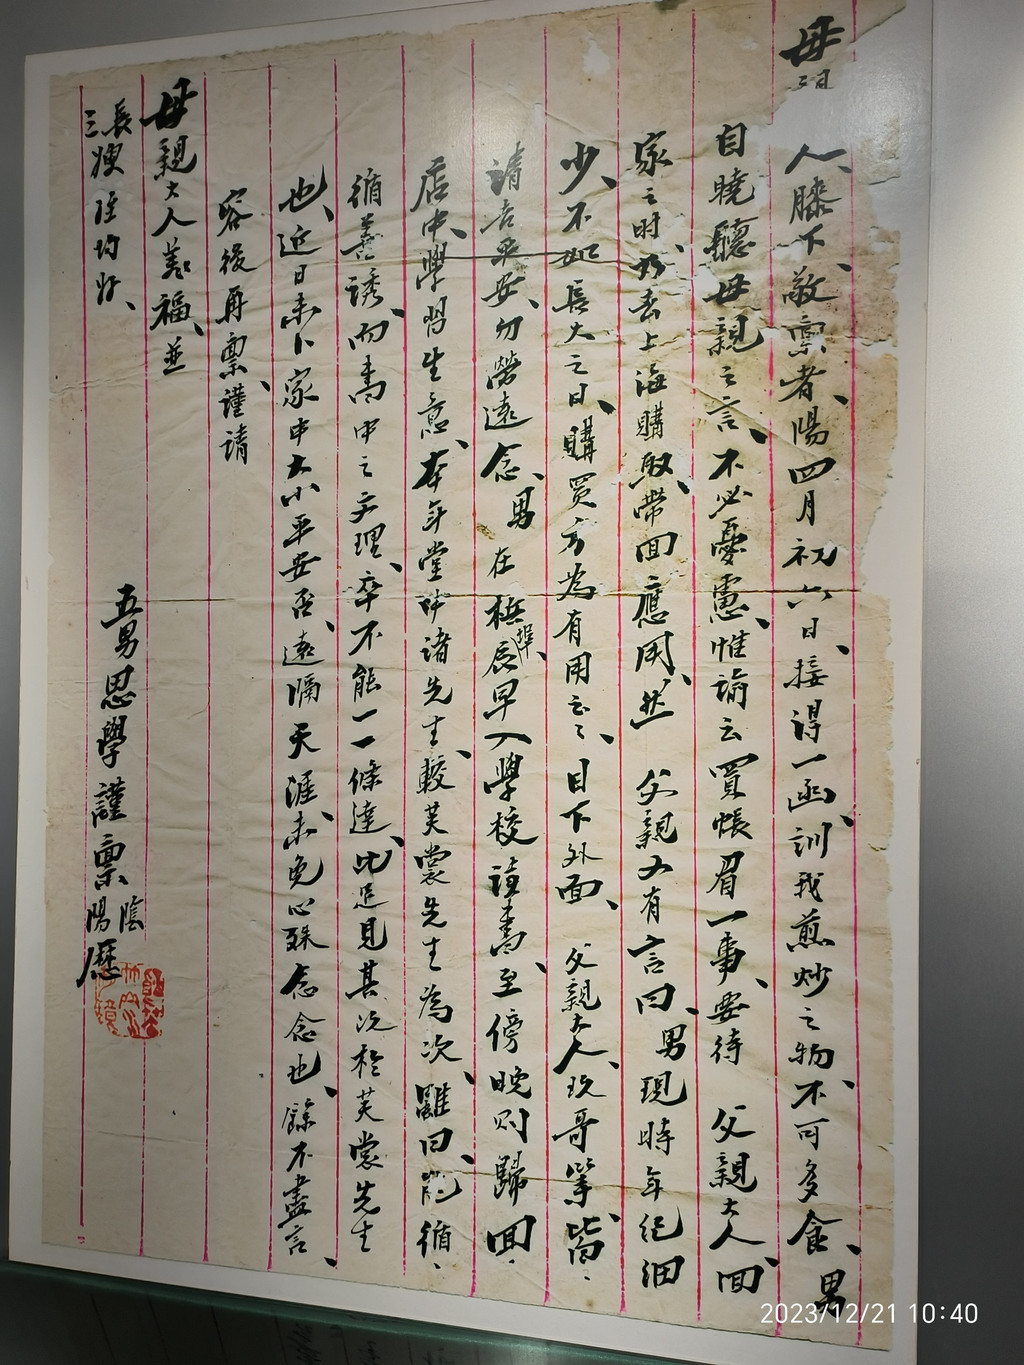 母親 人膝下、敬稟者、陽四月初六日、接得一函、訓我煎炒之物、不可多食、男
自曉聽母親之言、不必憂慮、惟諭云買帳眉一事、要待 父親大人回
家之時、乃去上海購取、帶回應用、然 父親又有言曰、男現時年紀細
少、不如長大之日、購買方為有用云々、目下外面、父親大人、玖哥等、皆、
請吉平安、勿勞遠念、男在横濱埠、辰早入學校讀書、至傍晚則歸回、
店中學習生意、本年堂中諸先生、較芙裳先生為次、雖曰能循、
循善誘、而書中之文理、卒不能一一條達、此足見其次於芙裳先生
也、近日未卜家中大小平安否、遠隔天涯、未免心殊念念也、餘不盡言、
容後再稟、謹請
母親大人萬福、並
長三嫂侄均好、
五男思學謹稟 陰陽歷
2023/12/21 10:40